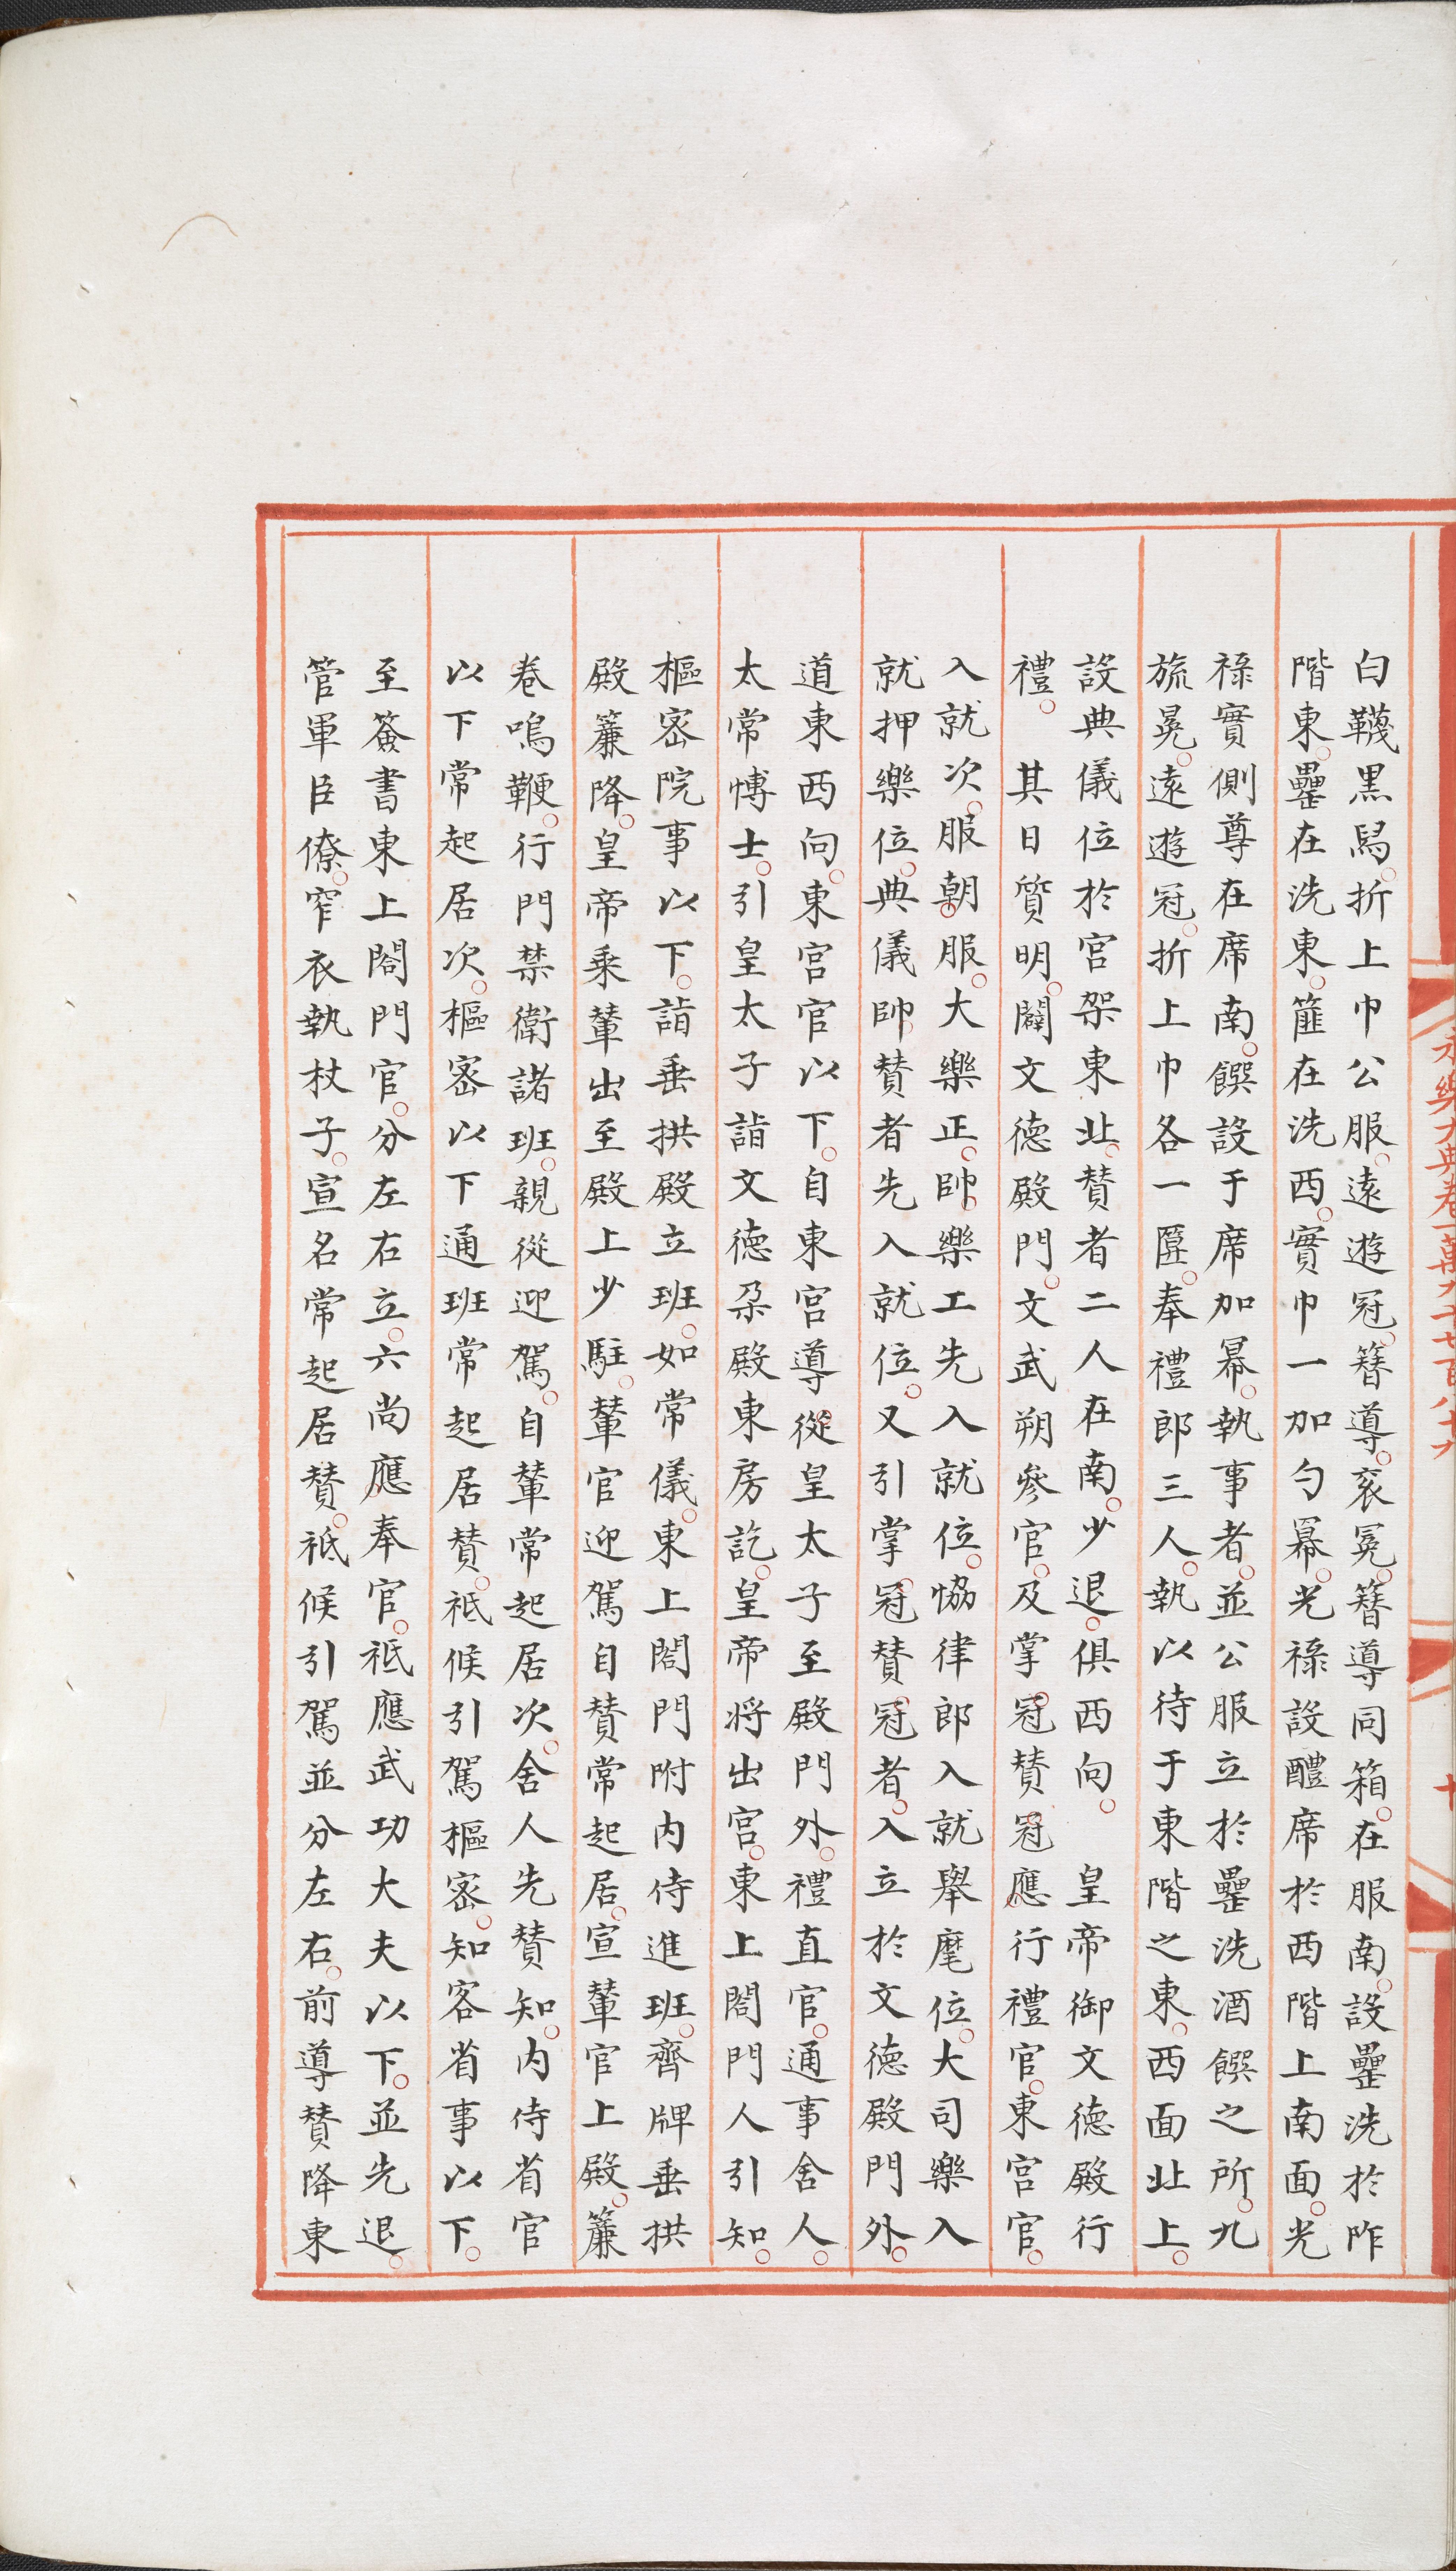 白韈黒舄折上巾公服遠遊冠簪導衮冕簪導同箱在服南設罍洗於阼
階東罍在洗東篚在洗西實巾一加勺冪光禄設醴席於西階上南面光
禄實側尊在席南饌設于席加冪執事者並公服立於罍洗酒饌之所九
旒冕遠遊冠折上巾各一匴奉禮郎三人執以待于東階之東西面北上
設典儀位於宫架東北賛者二人在南少退俱西向　皇帝御文德殿行
禮　其日質明闢文德殿門文武朔參官及掌冠賛冠應行禮官東宫官
入就次服朝服大樂正帥樂工先入就位恊律郎入就舉麾位大司樂入
就押樂位典儀帥賛者先入就位又引掌冠賛冠者入立於文德殿門外
道東西向東宫官以下自東宫導從皇太子至殿門外禮直官通事舍人
太常博士引皇太子詣文德朶殿東房訖皇帝将出宫東上閤門人引知
樞宻院事以下詣垂拱殿立班如常儀東上閤門附内侍進班齊牌垂拱
殿簾降皇帝乘輦出至殿上少駐輦官迎駕自賛常起居宣輦官上殿簾
卷鳴鞭行門禁衛諸班親從迎駕自輦常起居次舍人先賛知内侍省官
以下常起居次樞宻以下通班常起居賛祗候引駕樞宻知客省事以下
至簽書東上閤門官分左右立六尚應奉官祗應武功大夫以下並先退
管軍臣僚窄衣執杖子宣名常起居賛祗候引駕並分左右前導賛降東
永樂大典卷一萬九千七百八十九